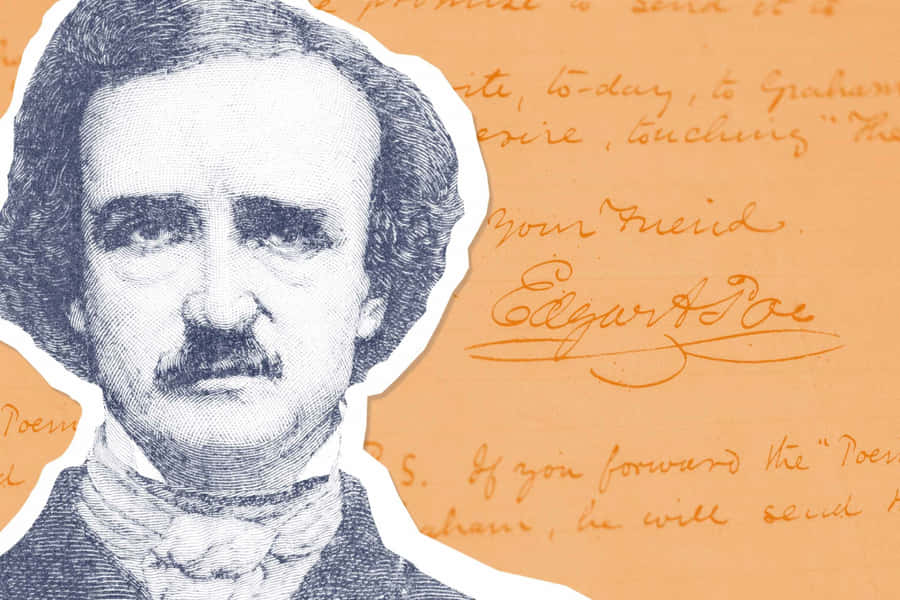 promise to send it to
ite, to-day, to Graham
esire, touching "The
your Friend.
Edgar A Poe
Poem
d
P.S. If you forward the "Poem
aham, he will send